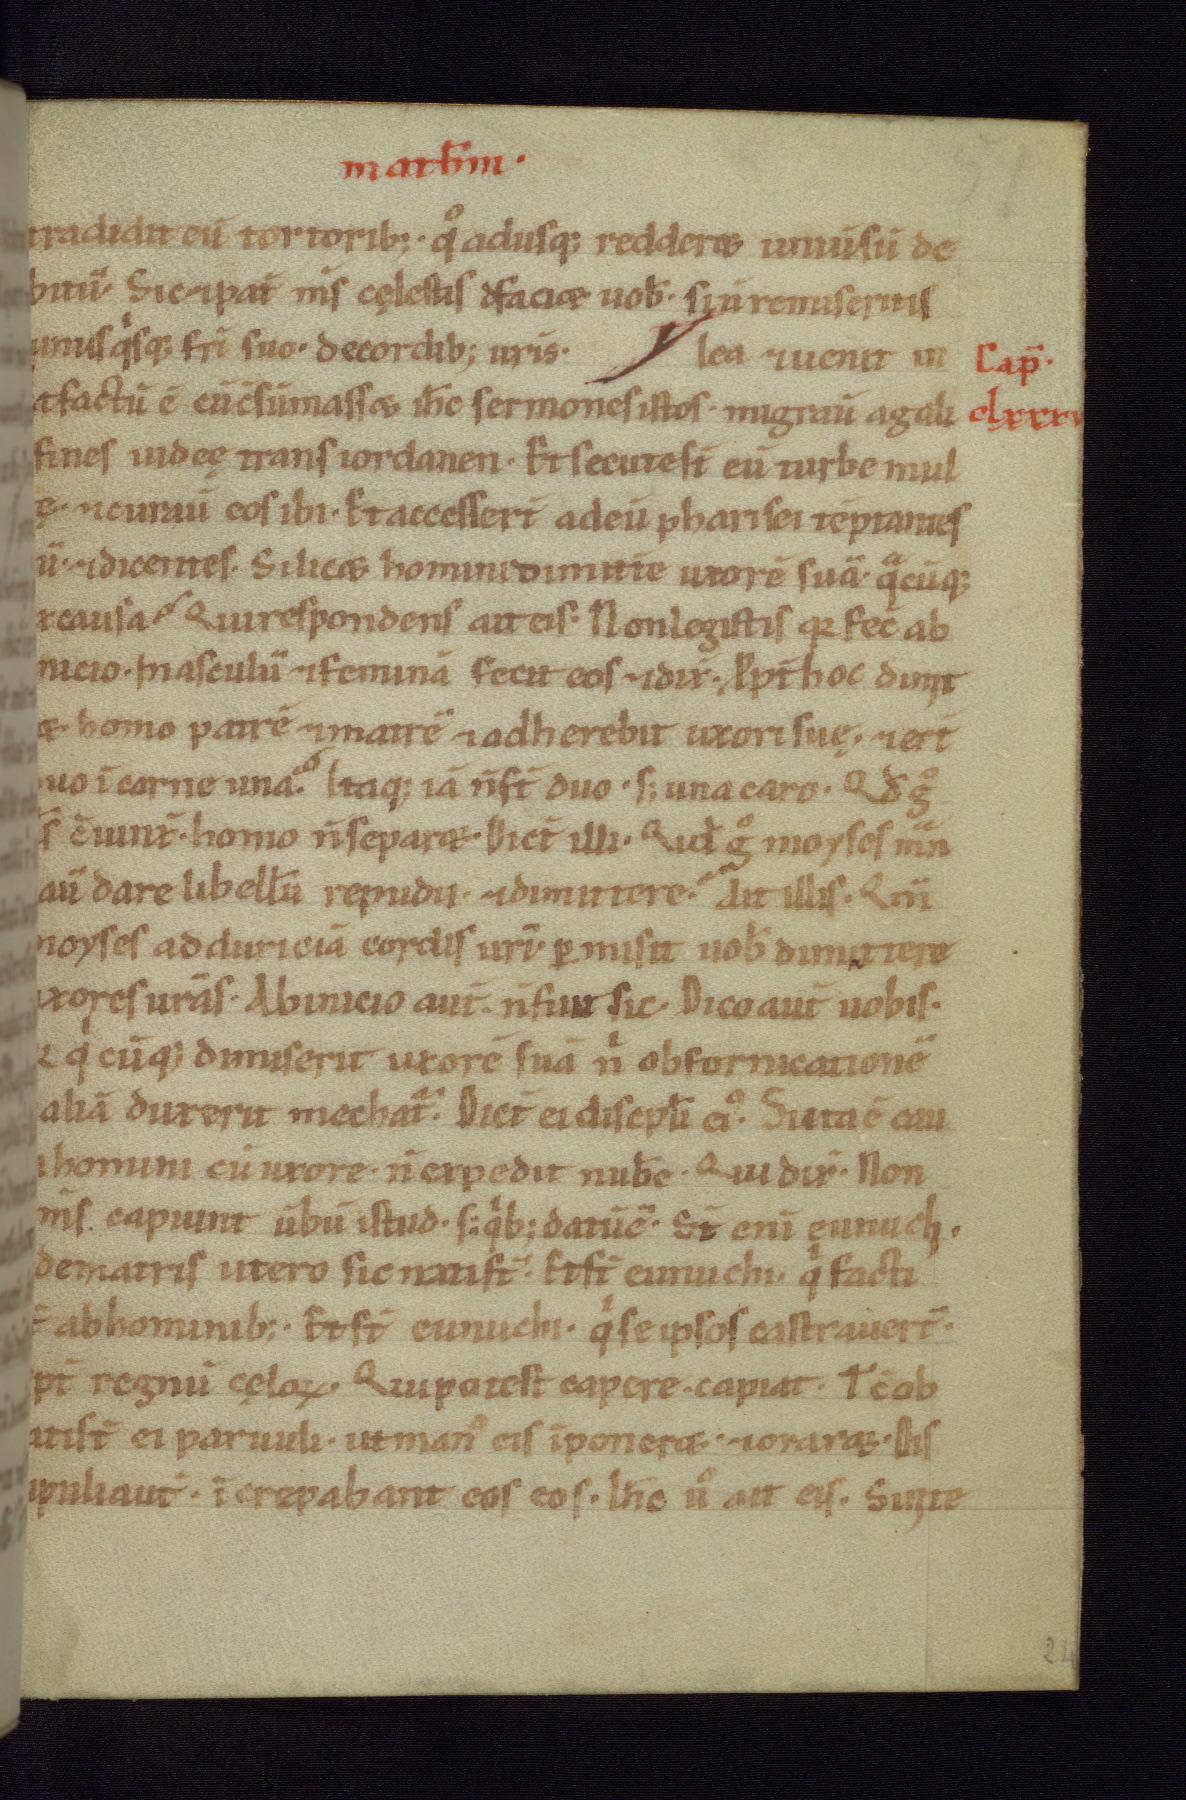 math̄m ·
tradidit eū tortorib; · q̊ adusq; redderet uniu̅su̅ de
bitū · Sic ⁊ pat̄ m̄s cęlestis ðfaciæ uob̄ · si n̄ remiseritis
unusqͥsq; fr̄i suo · decordib; ur̄is · lea ⁊ uenit in
Cap̄ ·
clxxxv
factū ē cū c̄sūmassæ ih̄c sermones istos · migrau̅ agali
fines iudeę trans iordanen · Et secute sт̄ eū turbe mul
ę · ⁊ curau̅ eos ibi · Et accessert̄ ad eū pharisei tēptantes
ū · ⁊ dicentes · Si licæ homini dimitt̄e uxorē suā · qͣcūq;
causa Qui respondens ait eis · Non legistis qꝛ fec̄ ab
nicio · masculū ⁊ feminā fecit eos ⁊ dix̄ · Ꝓpt̄ hoc dimit
æ · homo patrē ⁊ matrē ⁊ adherebit uxori suę · ⁊ ert̄
uo ī carne una · Itaq; iā n̄ sт̄ duo · s; una caro · Qð g̊
s̄ c̄iunx̄ · homo n̄ separæ · Dic̄t illi · Quid g̊ moyses mān
au̅ dare libellū repudii · ⁊ dimittere · Ait illis · Qm̄
moyses ad duriciā cordis ur̄i · ꝑmisit uob̄ dimittere
xores urās · Ab inicio aut̄ · n̄ fuit sic · Dico aut̄ uobis ·
qͥcūq; dimiserit uxorē suā nͥ ob fornicationē
aliā duxerit mechat̄ · Dic̄t ei discipl̄i ei᷒ · Si ita ē cau
homini cū uxore · n̄ expedit nub̄e · Qui dix̄ · Non
m̄s capiunt u̅bū istud · s; qͥb; datū ē · Sт̄ eni̅ eunuch̨ ·
de matris utero sic nati sт̄ · Et sт̄ eunuchi · qͥ facti
ab hominib; · Et sт̄ eunuchi · qͥ se ipsos castrauert̄ ·
pt̄ regnū cęloꝝ · Qui potest capere · capiat · T̄c ob
ati sт̄ ei paruuli · ut man᷒ eis īponeræ · ⁊ oraræ · Dis
ipuli aut̄ · īcrepabant eos eos · Ih̄c ů ait eis · Sinite